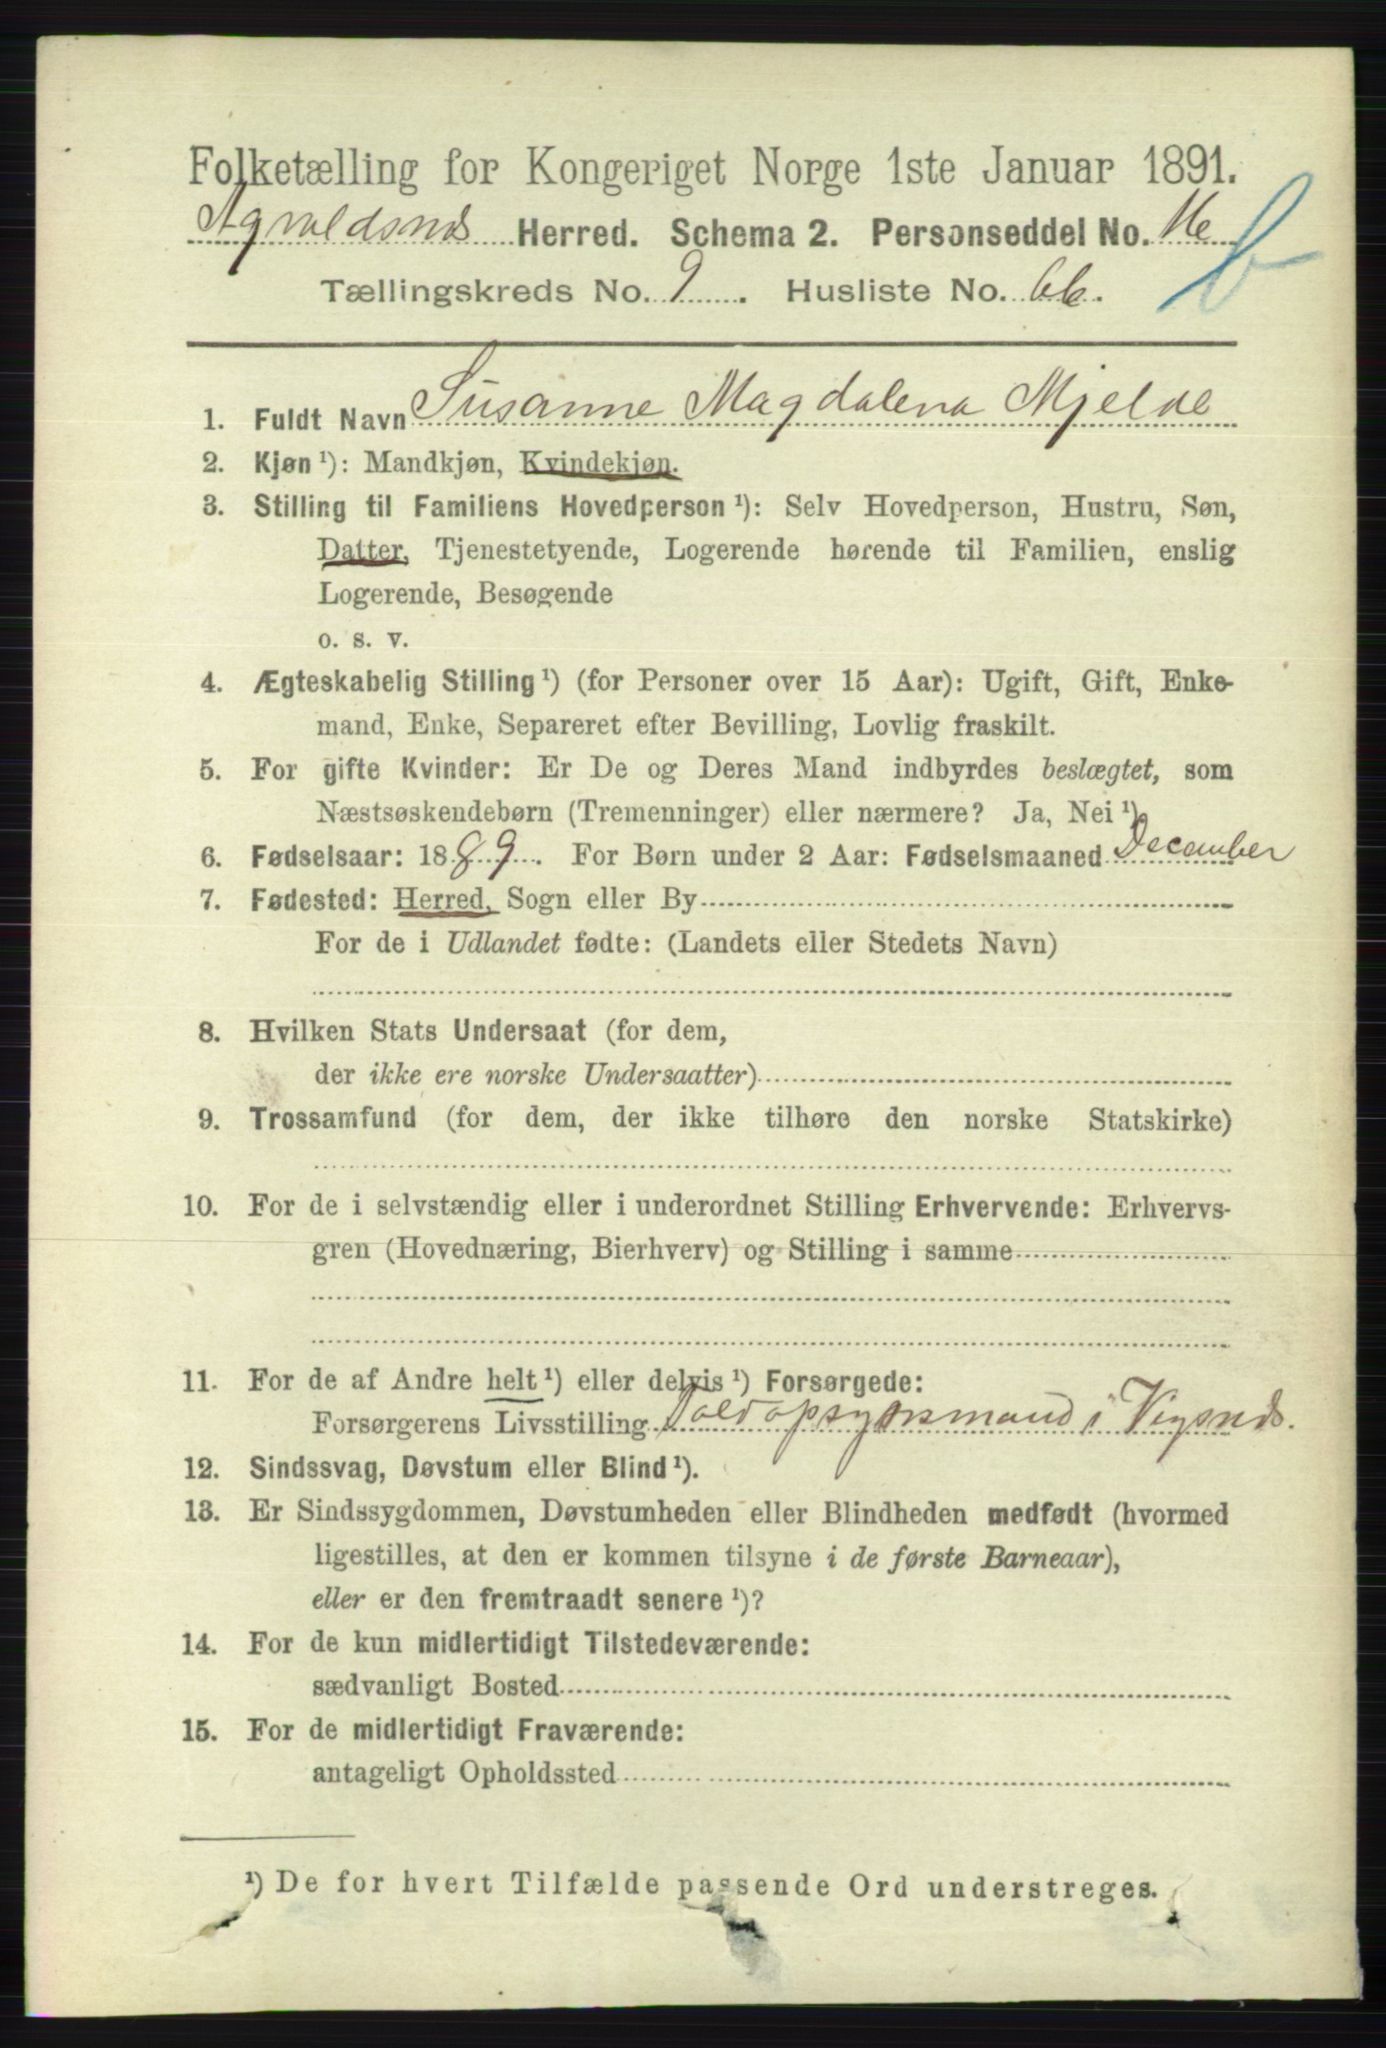 Folketælling for Kongeriget Norge 1ste Januar 1891.
Agvaldsnes Herred. Schema 2. Personseddel No. 16
b
Tællingskreds No. 9. Husliste No. 66.
1. Fuldt Navn Susanne Magdalena Mjelde
2. Kjøn ¹): Mandkjøn, Kvindekjøn.
3. Stilling til Familiens Hovedperson ¹): Selv Hovedperson, Hustru, Søn,
Datter, Tjenestetyende, Logerende hørende til Familien, enslig
Logerende, Besøgende
o. s. v.
4. Ægteskabelig Stilling ¹) (for Personer over 15 Aar): Ugift, Gift, Enke-
mand, Enke, Separeret efter Bevilling, Lovlig fraskilt.
5. For gifte Kvinder: Er De og Deres Mand indbyrdes beslægtet, som
Næstsøskendebørn (Tremenninger) eller nærmere? Ja, Nei ¹)
6. Fødselsaar: 1889. For Børn under 2 Aar: Fødselsmaaned December
7. Fødested: Herred, Sogn eller By
For de i Udlandet fødte: (Landets eller Stedets Navn)
8. Hvilken Stats Undersaat (for dem,
der ikke ere norske Undersaatter)
9. Trossamfund (for dem, der ikke tilhøre den norske Statskirke)
10. For de i selvstændig eller i underordnet Stilling Erhvervende: Erhvervs-
gren (Hovednæring, Bierhverv) og Stilling i samme
11. For de af Andre helt ¹) eller delvis ¹) Forsørgede:
Forsørgerens Livsstilling Toldopsynsmand i Vigsnes.
12. Sindssvag, Døvstum eller Blind ¹).
13. Er Sindssygdommen, Døvstumheden eller Blindheden medfødt (hvormed
ligestilles, at den er kommen tilsyne i de første Barneaar),
eller er den fremtraadt senere ¹)?
14. For de kun midlertidigt Tilstedeværende:
sædvanligt Bosted
15. For de midlertidigt Fraværende:
antageligt Opholdssted
¹) De for hvert Tilfælde passende Ord understreges.